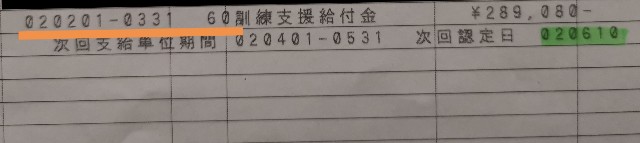 020201-0331 60訓練支援給付金 ¥289,080-
次回支給単位期間 020401-0531 次回認定日 020610